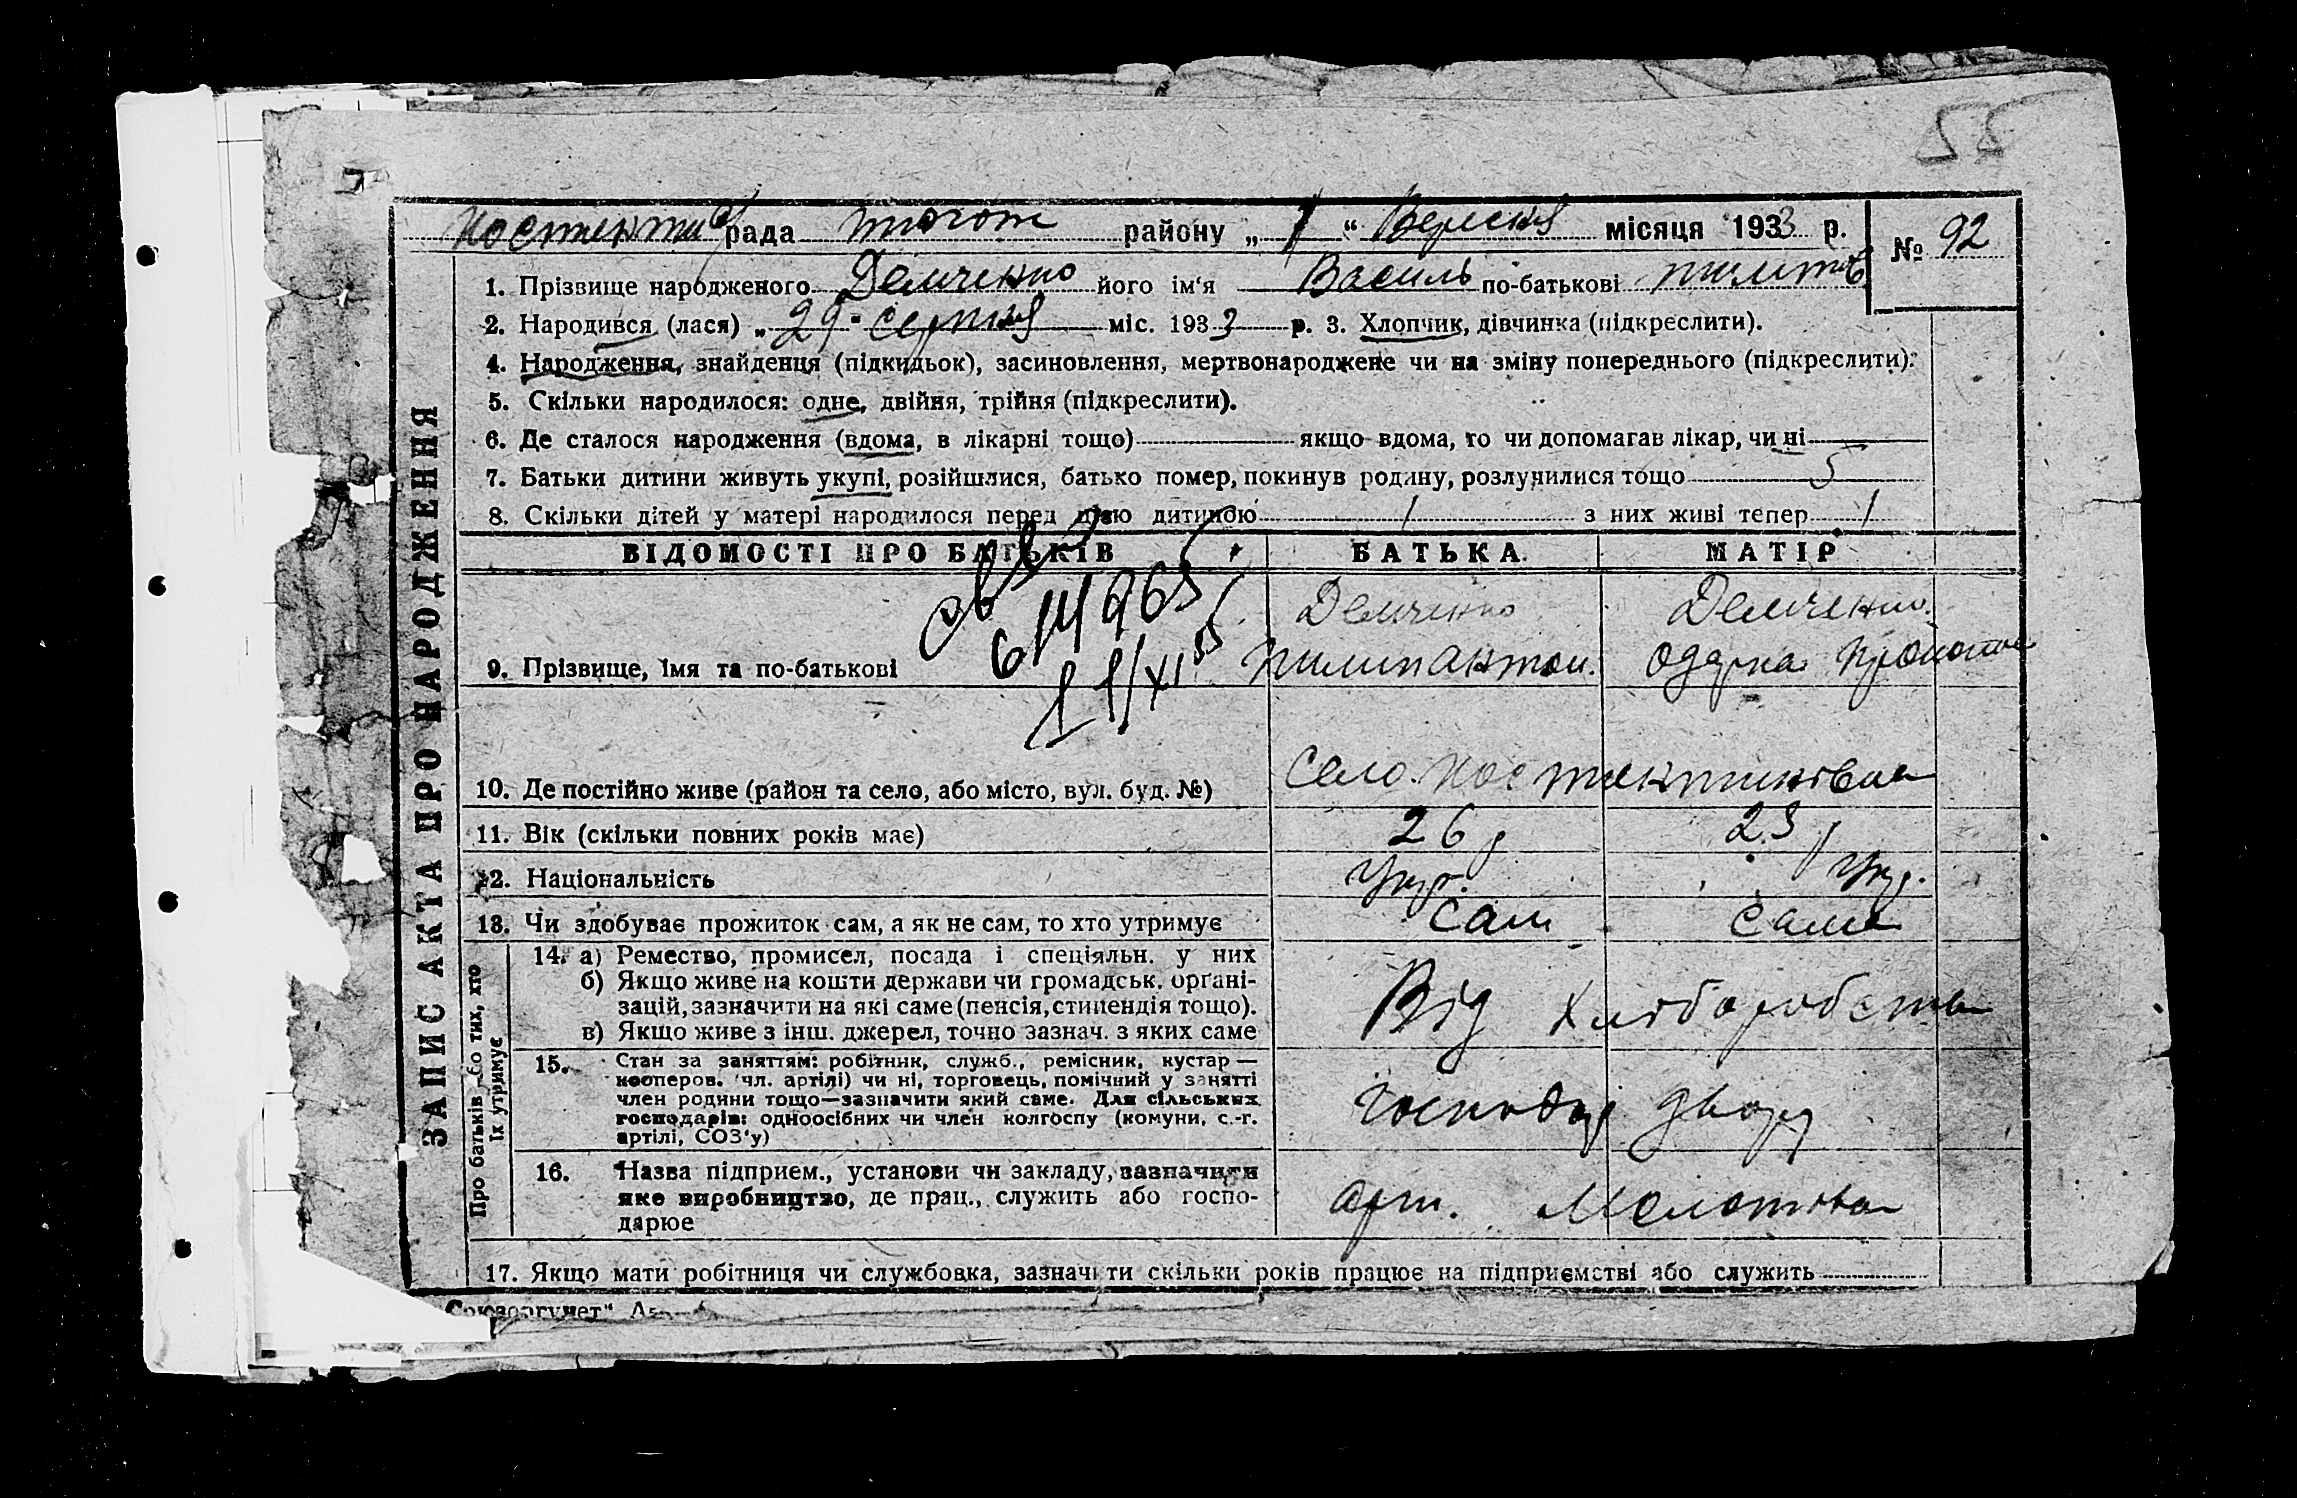 55
Костянтин рада району „ 1 “ Вересня місяця 1933 р. № 92
1. Прізвище народженого Демченко його ім‘я Василь по-батькові Пилипов
2. Народився (лася) „ 29 " серпня міс. 1933 р. 3. Хлопчик, дівчинка (підкреслити).
4. Народження, знайденця (підкидьок), засиновлення, мертвонароджене чи на зміну попереднього (підкреслити).
5. Скільки народилося: одне, двійня, трійня (підкреслити).
6. Де сталося народження (вдома, в лікарні тощо) якщо вдома, то чи допомагав лікар, чи ні
7. Батьки дитини живуть укупі, розійшлися, батько помер, покинув родину, розлучилися тощо 5
8. Скільки дітей у матері народилося перед цією дитиною 1 з них живі тепер 1
ВІДОМОСТІ ПРО БАТЬКІВ БАТЬКА МАТІР
Демченко Демченко
9. Прізвище, їмя та по-батькові Пилип Антон. Одарка
10. Де постійно живе (район та село, або місто, вул. буд. №) село Костянтинівка
11. Вік (скільки повних років має) 26 р 23 р
12. Національність Укр. Укр.
13. Чи здобуває прожиток сам, а як не сам, то хто утримує сам сама
14. а) Ремество, промисел, посада і спеціяльн. у них
б) Якщо живе на кошти держави чи громадськ. орґані-
зацій, зазначити на які саме (пенсія, стипендія тощо).
в) Якщо живе з інш. джерел, точно зазнач. з яких саме
Від хліборобства
15. Стан за заняттям: робітник, служб., ремісник, кустар —
кооперов. чл. артілі) чи ні, торговець, помічний у занятті
член родини тощо—зазначити який саме. Для сільських
господарів: одноосібних чи член колгоспу (комуни, с.-г.
артілі, СОЗ‘у)
Господар двору
16. Назва підприєм., установи чи закладу, зазначити
яке виробництво, де прац., служить або госпо-
дарюе
арт. Молотова
17. Якщо мати робітниця чи службовка, зазначити скільки років працює на підприємстві або служить
ЗАПИС АКТА ПРО НАРОДЖЕННЯ
Про батьків або тих, хто
їх утримує